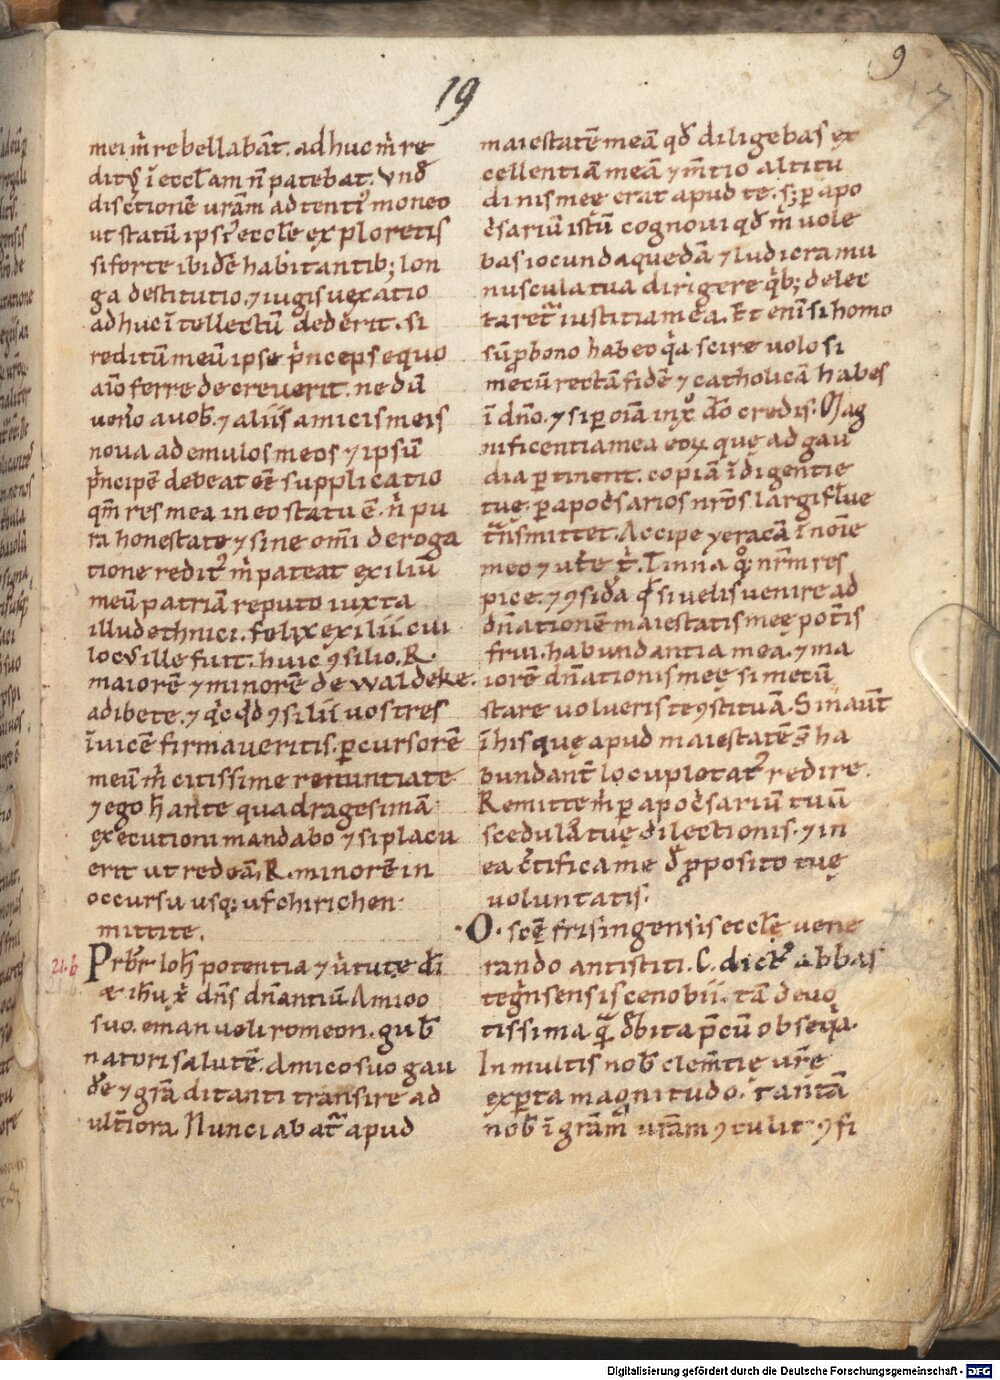 9
19
mei m̄ rebellabāt. adhuc m̄ re
ditꝰ ī eccl̄am n̄ patebat. Vnđ
discᵉtionē vrām adtentiꝰ moneo
ut statū ipsiꝰ eccl̄e exploretis
si forte ibidē habitantib; lon
ga destitutio ⁊ iugis uexatio
adhuc ītellectū dederit. si
reditū meū ipse p̄nceps equo
aīo ferre decreuerit. nedū
uen̄o a uob̄. ⁊ aliis amicis meis
noua ad emulos meos ⁊ ipsū
p̄ncipē debeat ēē supplicatio
qm̄ res mea in eo statu ē. n̄ pu
ra honestate ⁊ sine om̄i deroga
tione reditꝰ m̄ pateat exiliū
meū patriā reputo iuxta
illud ethnici. felix exilii. cui
locꝰ ille fuit. huic ꝯsilio. R.
maiorē ⁊ minorē de waldeke.
adibete. ⁊ qͥcqͥd ꝯsilii uostres
īuicē firmaueritis. ꝑcursorē
meū m̄ citissime renuntiate
⁊ ego h̄ ante quadragesimā
executioni mandabo ⁊ si placu
erit ut redeā, R. minorē in
occursu usq; ufchirichen
mittite.
21.b
Prb̄r Ioh̄ potentia ⁊ uͥtute dī
⁊ ih̄u xͥ dn̄s dn̄antiū Amico
suo. emanueli romeon. gub̄
natori salutē. Amico suo gau
đe ⁊ gr̄a ditanti transire ad
ult̄iora. Nunciabatᷣ apud
maiestatē meā qđ diligebas ex
cellentiā meā ⁊ m̄tio altitu
dinis meę erat apud te. s; ꝑ apo
c̄sariū istū cognoui qđ m̄ uole
bas iocunda quedā ⁊ ludicra mu
nuscula tua dirigere qͥb; delec
taretᷣ iustitia mea. Et enī si homo
sū ꝓ bono habeo qͥa scire uolo si
mecū rectā fidē ⁊ catholicā habes
ī dn̄o. ⁊ si ꝑ oīa in xͦ ih̄o credis. Mag
nificentia mea eoꝝ quę ad gau
dia ꝑtinent. copiā īdigentie
tuę. ꝑ apoc̄sarios nr̄os largiflue
tᷓnsmittet. Accipe yeracā ī noīe
meo ⁊ utē tͥ. Tinna qͦ; nrm̄ res
pice. ⁊ ꝯsiđa qđ si uelis uenire ad
dn̄ationē maiestatis meę pot̄is
frui. habundantia mea. ⁊ ma
iorē dn̄ationis meę si mecū
stare uolueris te ꝯstituā. Sin aut̄
ī his quę apud maiestatē s̄ ha
bundant̄ locupletatꝰ redire.
Remitte m̄ ꝑ apoc̄sariū tuū
scedulā tuę dilectionis. ⁊ in
ea c̄tifica me đ ꝓposito tuę
uoluntatis.
O. scē frisingensis eccl̄ę uene
rando antistiti. C. dictꝰ abbas
tegͥnsensis cenobii. tā deuo
tissima qᷓ đbita p̄cū obseqͥa.
In multis nob̄ clem̄tię ur̄ę
exꝑta magnitudo. tantā
nob̄ ī grām̄ urām ꝯtulit. ꝯfi
Digitalisierung gefördert durch die Deutsche Forschungsgemeinschaft - DFG